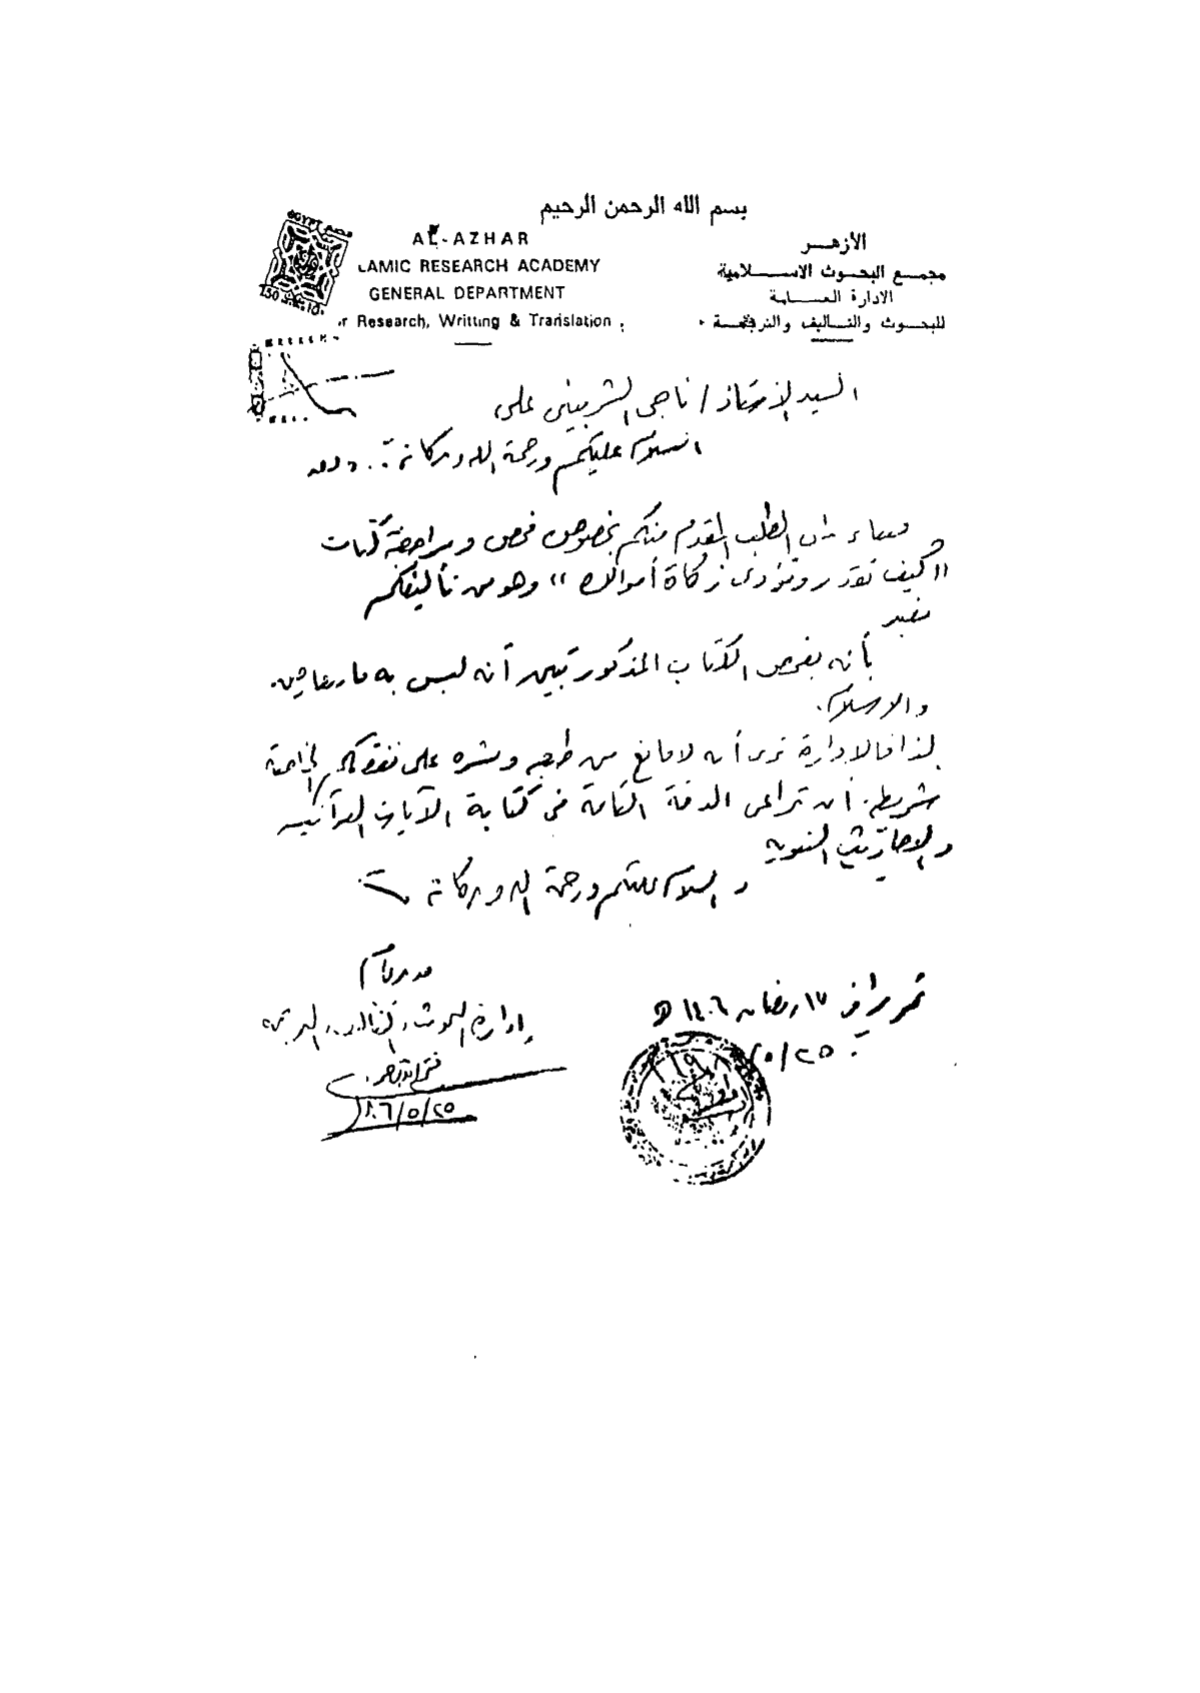 بسم الله الرحمن الرحيم
AL-AZHAR
LAMIC RESEARCH ACADEMY
GENERAL DEPARTMENT
r Research, Writting & Translation
الأزهر
مجمع البحوث الاسلامية
الادارة العامة
للبحوث والتأليف والترجمة
EGYPT مصر
السيد الأستاذ / ناجى الشربينى على
السلام عليكم ورحمة الله وبركاته .. وبعد
فبناء على الطلب المقدم منكم بخصوص فحص ومراجعة كتاب
" كيف تقدر وتؤدى زكاة أموالك " وهو من تأليفكم
نفيد
بأنه بفحص الكتاب المذكور تبين أنه ليس به ما يتعارض
والإسلام .
لذا فالإدارة ترى أنه لا مانع من طبعه ونشره على نفقتكم الخاصة
شريطة أن تراعى الدقة التامة فى كتابة الآيات القرآنية
والأحاديث النبوية
والسلام عليكم ورحمة الله وبركاته
مدير عام
إدارة البحوث والتأليف والترجمة
٢٥/٥/٨٦
تحريرا فى ١٧ رمضان ١٤٠٦ هـ
٢٥/٥/